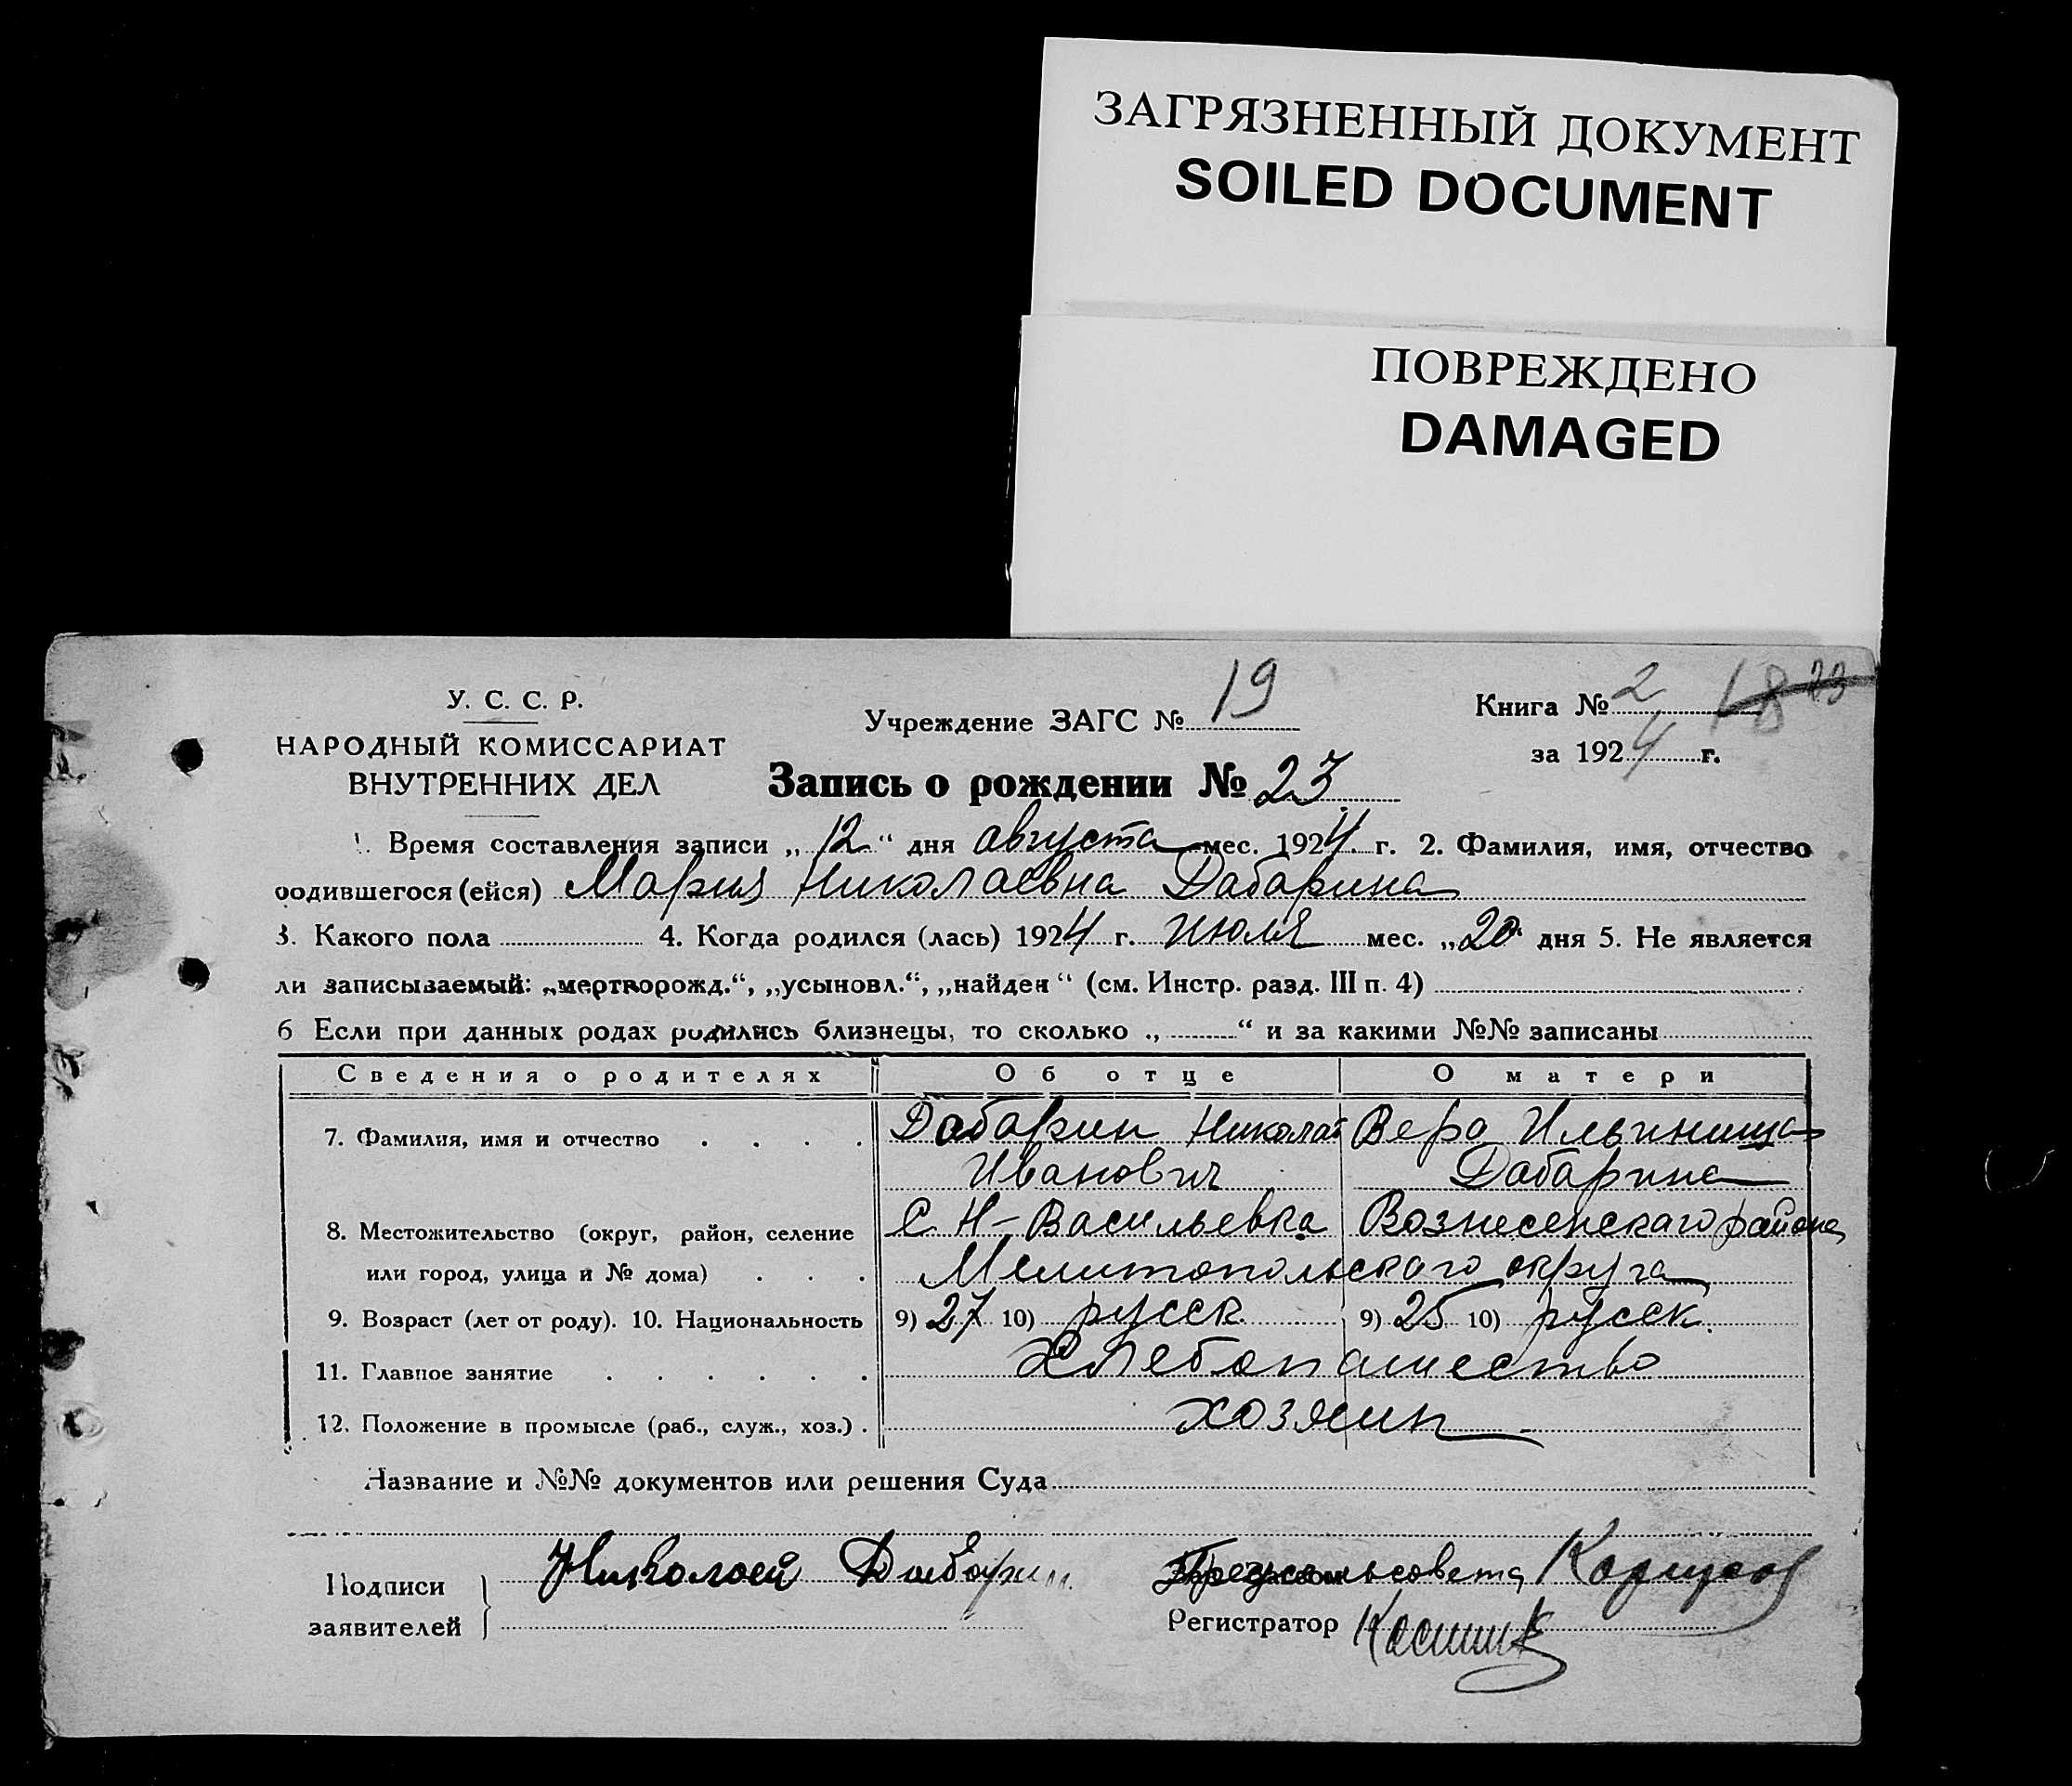 ЗАГРЯЗНЕННЫЙ ДОКУМЕНТ
SOILED DOCUMENT
ПОВРЕЖДЕНО
DAMAGED
У. С. С. Р.
НАРОДНЫЙ КОМИССАРИАТ
ВНУТРЕННИХ ДЕЛ
Учреждение ЗАГС № 19
Книга № 2 18 23
за 1924 г.
Запись о рождении № 23
1. Время составления записи „12“ дня августа мес. 1924 г. 2. Фамилия, имя, отчество
родившегося (ейся) Мария Николаевна Дабарина
3. Какого пола 4. Когда родился (лась) 1924 г. июля мес. „20“ дня 5. Не является
ли записываемый: „мертворожд.“, „усыновл.“, „найден“ (см. Инстр. разд. III п. 4)
6 Если при данных родах родились близнецы, то сколько „ “ и за какими №№ записаны
Сведения о родителях Об отце О матери
7. Фамилия, имя и отчество Дабарин Николай Вера Ильинишна
Иванович Дабарина
8. Местожительство (округ, район, селение С. Н-Васильевка Вознесенскаго района
или город, улица и № дома) Мелитопольскаго округа
9. Возраст (лет от роду). 10. Национальность 9) 27 10) русск. 9) 25 10) русск.
11. Главное занятие Хлебопашество
12. Положение в промысле (раб., служ., хоз.) хозяин
Название и №№ документов или решения Суда
Подписи
заявителей
Николай Дабарин
Предсельсовета
Регистратор